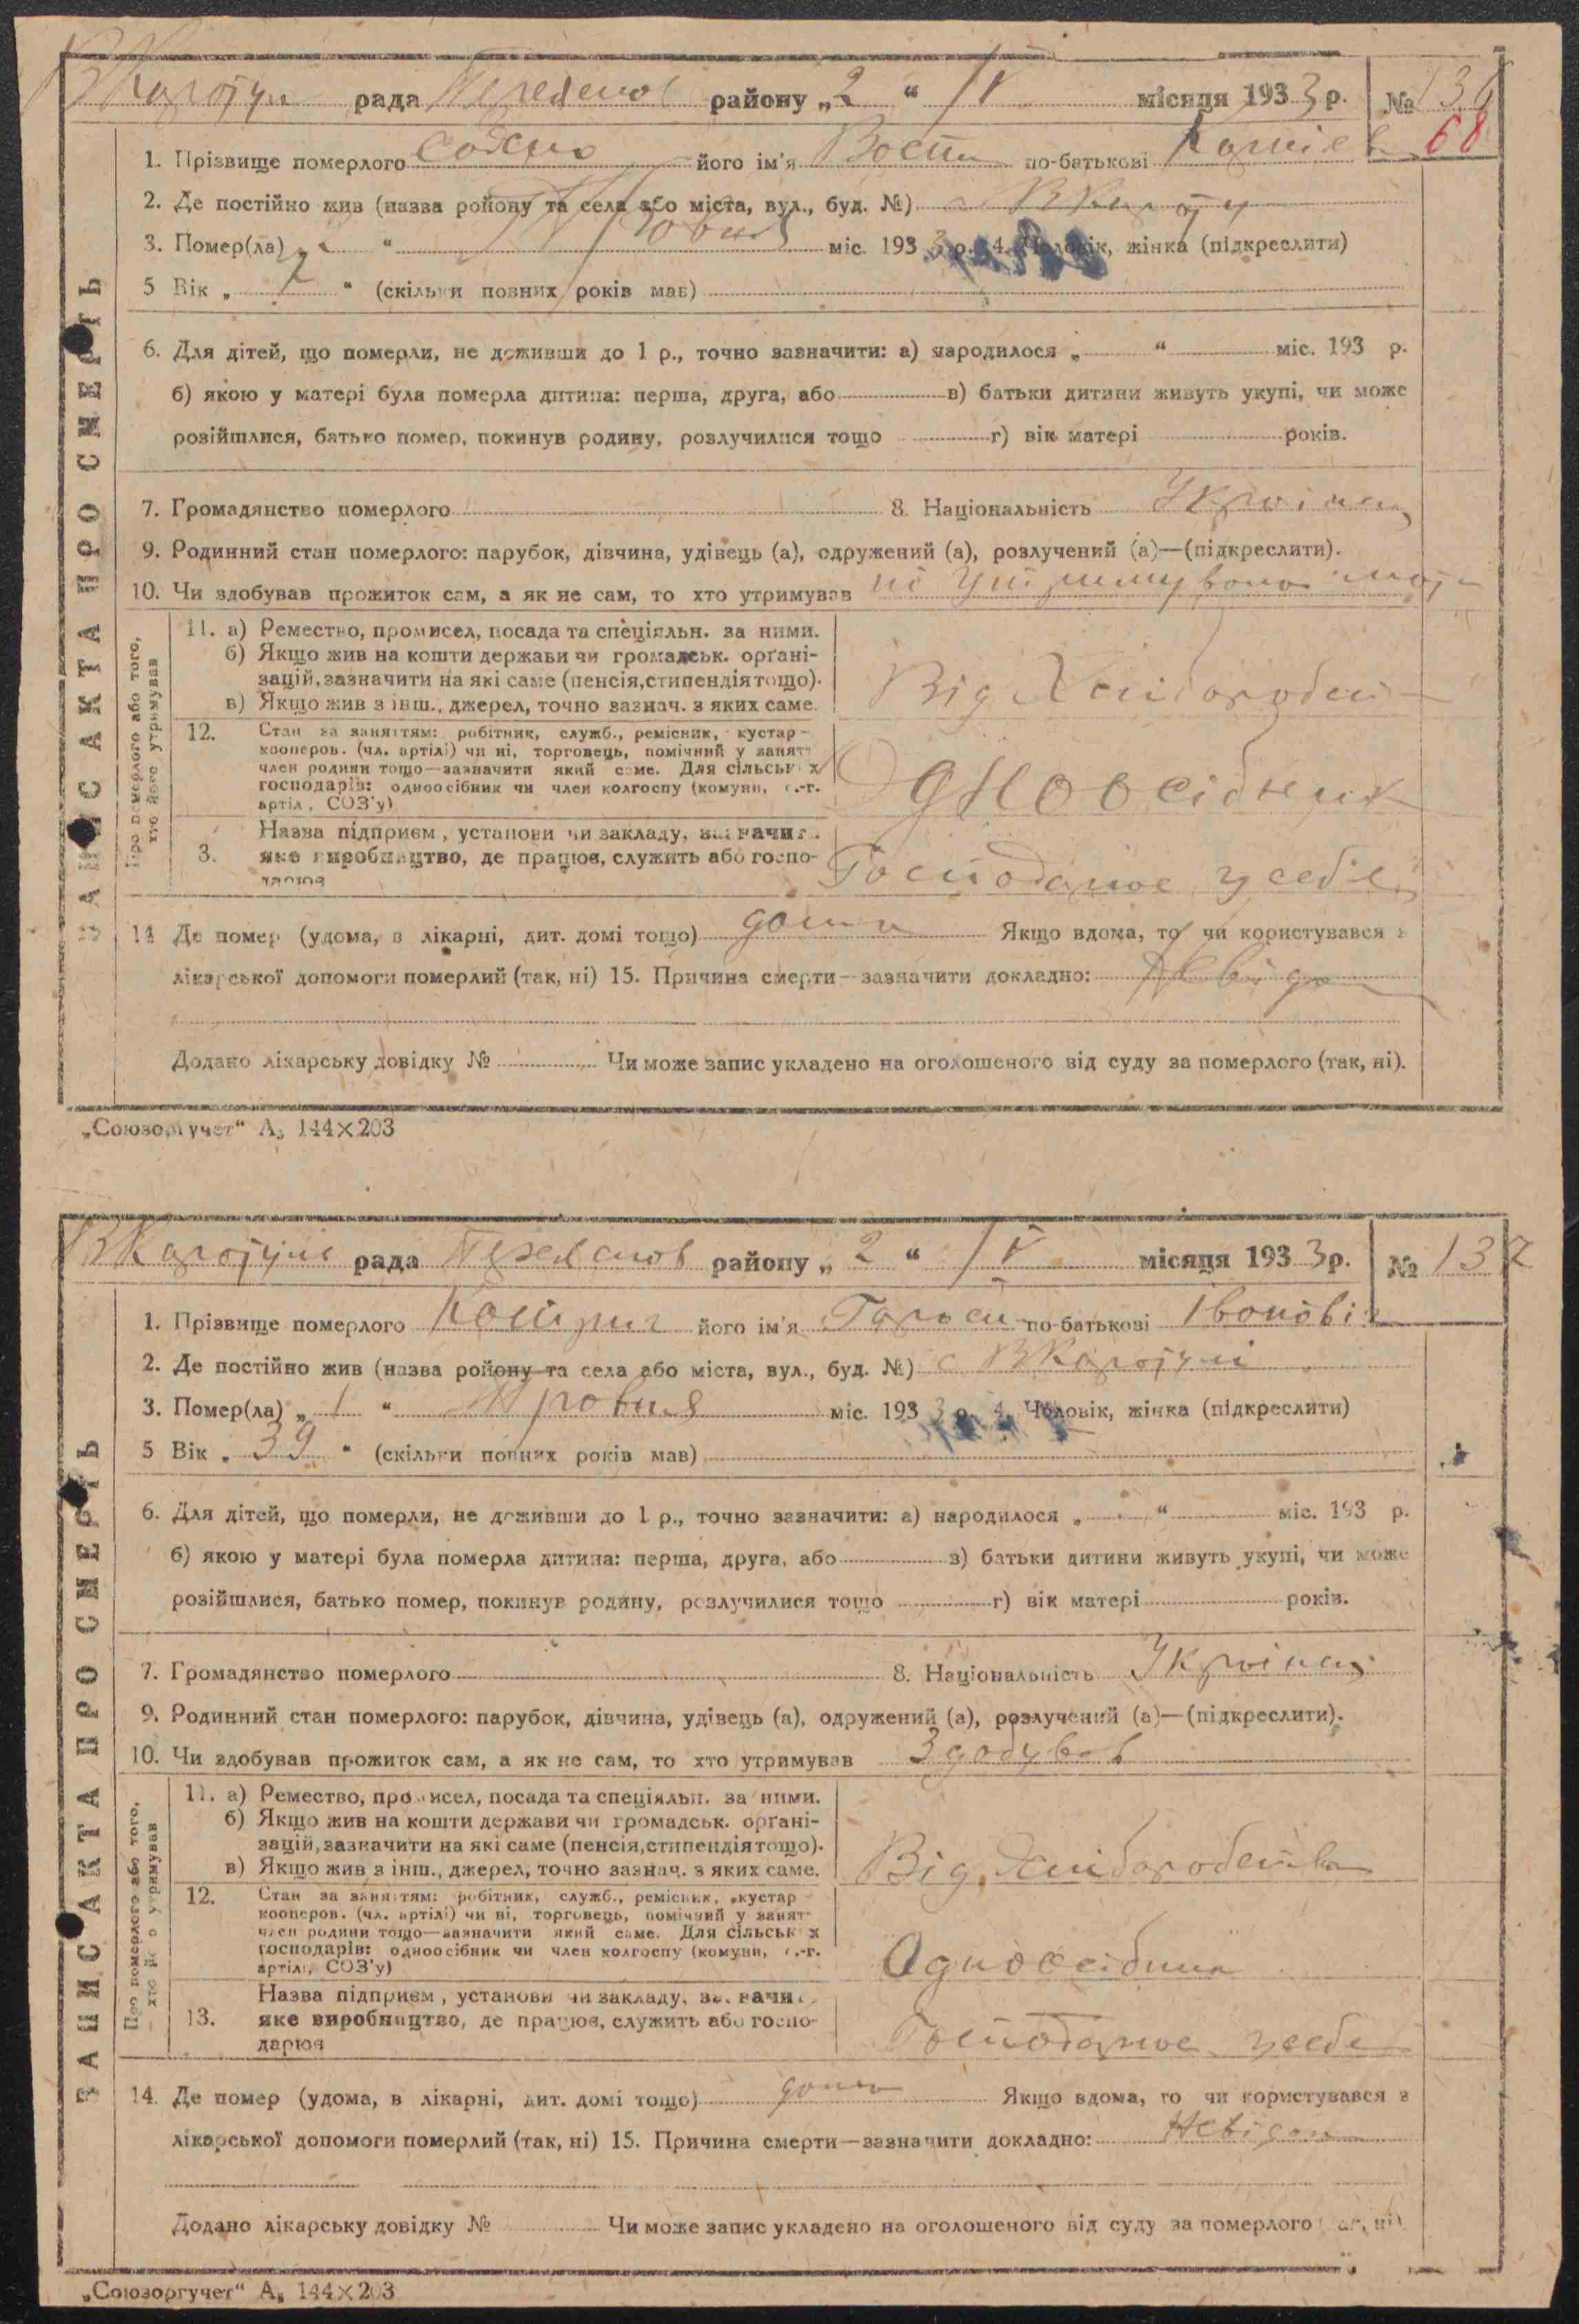 рада району „2 “ / V місяця 1933 р. № 136
68
1. Прізвище померлого його ім'я по-батькові
2. Де постійно жив (назва ройону та села або міста, вул., буд. №) с
3. Помер(ла) „ “ міс. 1933 р. 4. Чоловік, жінка (підкреслити)
5 Вік „ “ (скільки повних років мав)
6. Для дітей, що померли, не доживши до 1 р., точно зазначити: а) народилося „ “ міс. 193 р.
б) якою у матері була померла дитина: перша, друга, або в) батьки дитини живуть укупі, чи може
розійшлися, батько помер, покинув родину, розлучилися тощо г) вік матері років.
7. Громадянство померлого 8. Національність Украінец
9. Родинний стан померлого: парубок, дівчина, удівець (а), одружений (а), розлучений (а)—(підкреслити).
10. Чи здобував прожиток сам, а як не сам, то хто утримував ні
Про померлого або того,
хто його утримував
11. а) Ремество, промисел, посада та спеціяльн. за ними.
б) Якщо жив на кошти держави чи громадськ. орґані-
зацій, зазначити на які саме (пенсія, стипендія тощо).
в) Якщо жив з інш., джерел, точно зазнач. з яких саме.
Від
12. Стан за заняттям: робітник, служб., ремісник, кустар-
кооперов. (чл. артілі) чи ні, торговець, помічний у занятт
член родини тощо—зазначити який саме. Для сільськ х
господарів: одноосібник чи член колгоспу (комуни, с.-г.
артіл , СОЗ'у)
Одноосібник
3. Назва підприєм , установи чи закладу, зазначит
яке виробництво, де працює, служить або госпо-
дарює
Господарює у себе
14 Де помер (удома, в лікарні, дит. домі тощо) дома Якщо вдома, то чи користувався з
лікарської допомоги померлий (так, ні) 15. Причина смерти—зазначити докладно:
Додано лікарську довідку № Чи може запис укладено на оголошеного від суду за померлого (так, ні).
ЗАПИС АКТА ПРО СМЕРТЬ
„Союзоргучет“ А₅ 144×203
рада району „ 2 “ / V місяця 1933 р. № 137
1. Прізвище померлого його ім'я по-батькові Івонові
2. Де постійно жив (назва ройону та села або міста, вул., буд. №) с
3. Помер(ла) „ 1 “ міс. 1933 р. 4. Чоловік, жінка (підкреслити)
5 Вік „ 39 “ (скільки повних років мав)
6. Для дітей, що померли, не доживши до 1 р., точно зазначити: а) народилося „ “ міс. 193 р.
б) якою у матері була померла дитина: перша, друга, або в) батьки дитини живуть укупі, чи може
розійшлися, батько помер, покинув родину, розлучилися тощо г) вік матері років.
7. Громадянство померлого 8. Національність Украінец
9. Родинний стан померлого: парубок, дівчина, удівець (а), одружений (а), розлучений (а)—(підкреслити).
10. Чи здобував прожиток сам, а як не сам, то хто утримував Здобував
Про померлого або того,
хто його утримував
11. а) Ремество, промисел, посада та спеціяльн. за ними.
б) Якщо жив на кошти держави чи громадськ. орґані-
зацій, зазначити на які саме (пенсія, стипендія тощо).
в) Якщо жив з інш., джерел, точно зазнач. з яких саме.
Від
12. Стан за заняттям: робітник, служб., ремісник, кустар
кооперов. (чл. артілі) чи ні, торговець, помічний у занятт
член родини тощо—зазначити який саме. Для сільськ х
господарів: одноосібник чи член колгоспу (комуни, с.-г.
артілі, СОЗ'у)
Одноосібник
13. Назва підприєм , установи чи закладу, зазначит
яке виробництво, де працює, служить або госпо-
дарює
Господарює у себе
14. Де помер (удома, в лікарні, дит. домі тощо) дома Якщо вдома, то чи користувався з
лікарської допомоги померлий (так, ні) 15. Причина смерти—зазначити докладно: Невідома
Додано лікарську довідку № Чи може запис укладено на оголошеного від суду за померлого (так, ні)
ЗАПИС АКТА ПРО СМЕРТЬ
„Союзоргучет“ А₅ 144×203